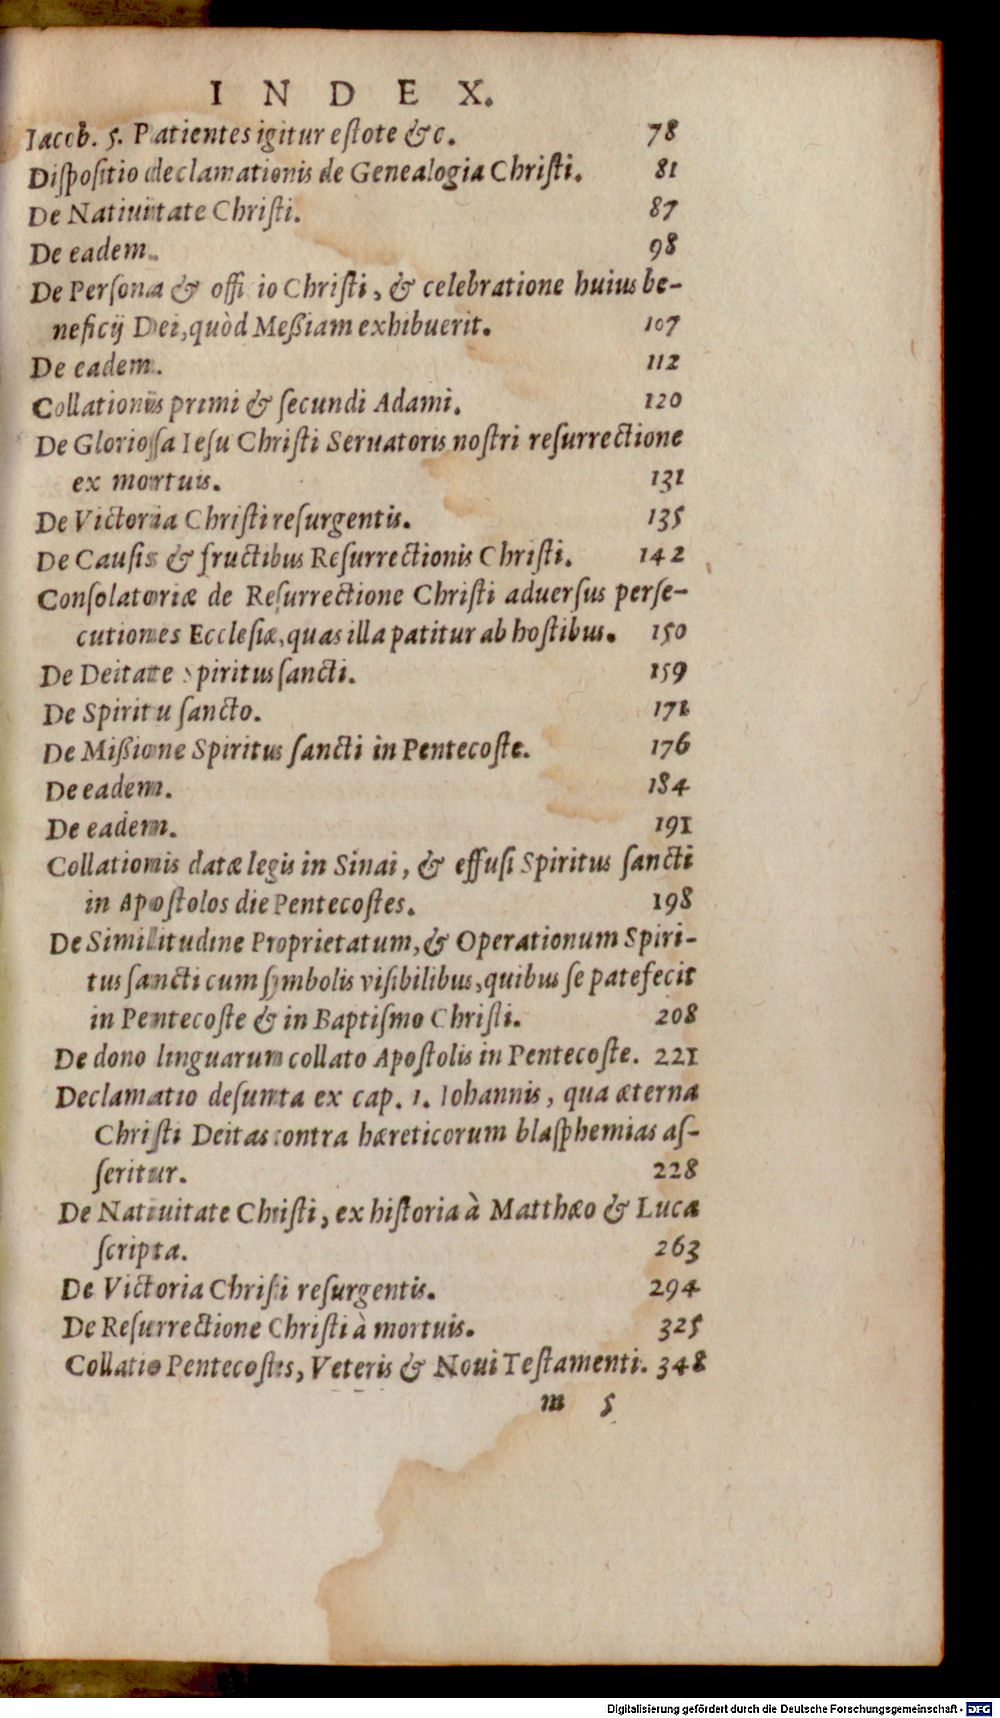 INDEX.
Iacob. 5. Patientes igitur eſtote &c. 78
Diſpoſitio declamationis de Genealogia Chriſti. 81
De Natiuitate Chriſti. 87
De eadem. 98
De Perſona & offi io Chriſti, & celebratione huius be-
neficij Dei, quòd Meßiam exhibuerit. 107
De eadem. 112
Collationis primi & ſecundi Adami. 120
De Glorioſa Ieſu Chriſti Seruatoris noſtri reſurrectione
ex mortuis. 131
De Victoria Chriſti reſurgentis. 135
De Cauſis & fructibus Reſurrectionis Chriſti. 142
Conſolatoriæ de Reſurrectione Chriſti aduerſus perſe-
cutiones Eccleſiæ, quas illa patitur ab hoſtibus. 150
De Deitate Spiritus ſancti. 159
De Spiritu ſancto. 171
De Mißione Spiritus ſancti in Pentecoſte. 176
De eadem. 184
De eadem. 191
Collationis datæ legis in Sinai, & effuſi Spiritus ſancti
in Apoſtolos die Pentecoſtes. 198
De Similitudine Proprietatum, & Operationum Spiri-
tus ſancti cum ſymbolis viſibilibus, quibus ſe patefecit
in Pentecoſte & in Baptiſmo Chriſti. 208
De dono linguarum collato Apoſtolis in Pentecoſte. 221
Declamatio deſumta ex cap. 1. Iohannis, qua æterna
Chriſti Deitas contra hæreticorum blaſphemias aſ-
ſeritur. 228
De Natiuitate Chriſti, ex hiſtoria à Matthæo & Luca
ſcripta. 263
De Victoria Chriſti reſurgentis. 294
De Reſurrectione Chriſti à mortuis. 325
Collatio Pentecoſtes, Veteris & Noui Teſtamenti. 348
m 5
Digitalisierung gefördert durch die Deutsche Forschungsgemeinschaft - DFG